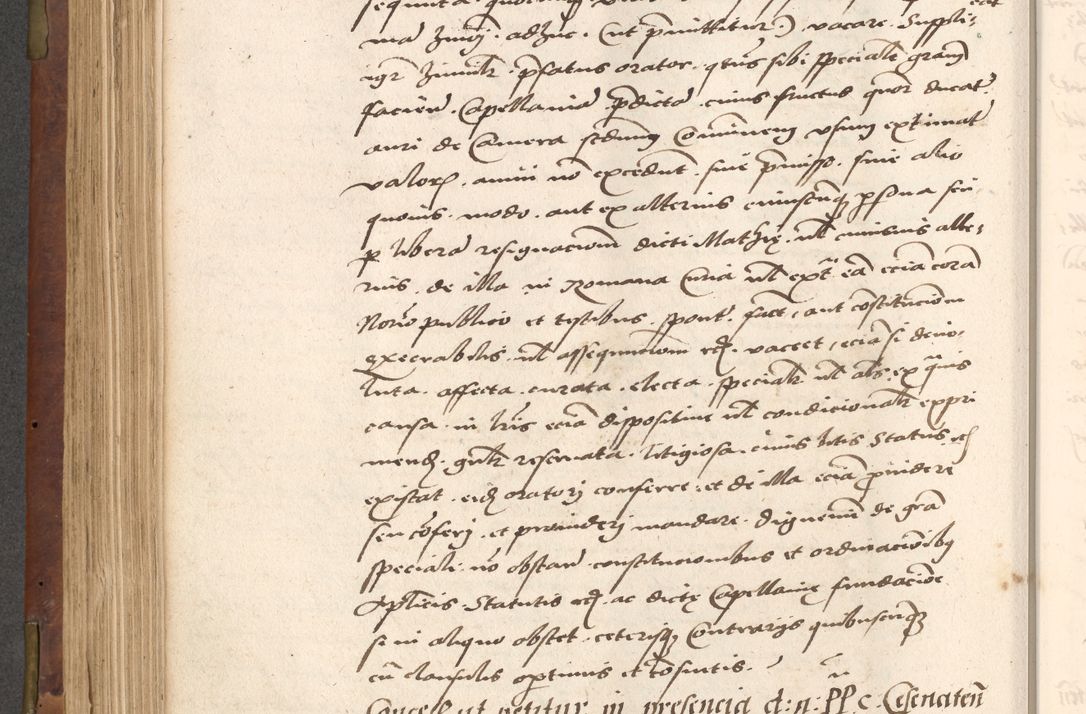 ma huiꝰ adhuc (ut p̄mittitur) vacare. Suppli-
igr̃ humilr̃ p̄fatus orator qtus sibi speciale gram̃
facieñ Capellania p̄dicta cuius fructus quor̃ ducat
auri de Camera scdum Communem usum extimat
valorẽ annui nō excedunt sive p̄misso sive alio
quovis modo aut ex alterius cuiuscunq̃ psona seu
p libera resignacionem dicti Mathię ul̃ cuiusvis alte-
rius de illa in Romana Curia ul̃ extra eã eciã corã
Norio publico et testibus spont fact aut cõstitucionem
execrabilis ul̃ assequucionem rc̃ vacet eciã si devo-
luta affecta curata electa specialr̃ ul̃ als ex quavis
causa in lr̃is eciã dispositive ul̃ condicionalr̃ expri
mend gnlr̃ reservata litigiosa cuius litis status rc̃
existat eidẽ oratori conferre et de illa eciã providere
seu cõferri et provideri mandare dignemini de gra
speciali nõ obstan constitucionibus et ordinacionibus
Aplicis Statutis rc̃ ac dictę Capellanię fundacione
si in aliquo obstet ceterisq̃ Contrarijs quibuscunq̃
cũ clausulis optimis et cõsuetis
Concess ut petitur in presencia d. n. PP. C. Cesenateñ